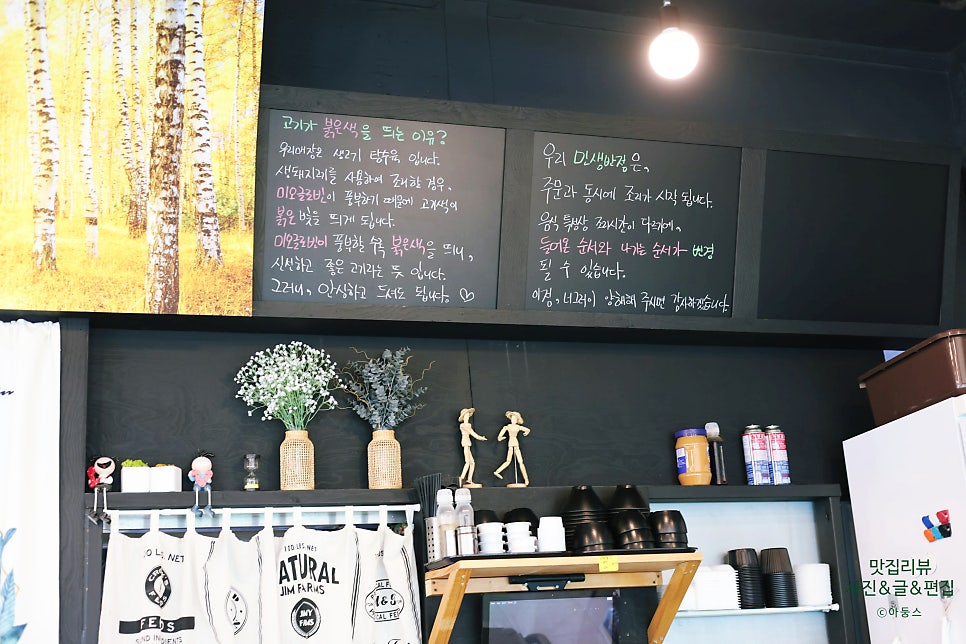 고기가 붉은색을 띄는 이유?
우리매장은 생고기 탕수육 입니다.
생돼지고기를 사용하여 조리할 경우,
미오글로빈이 풍부하기 때문에 고기색이
붉은 빛을 띄게 됩니다.
미오글로빈이 풍부할 수록 붉은색을 띄니,
신선하고 좋은 고기라는 뜻 입니다.
그러니, 안심하고 드셔도 됩니다. ♡
우리 민생반점은,
주문과 동시에 조리가 시작 됩니다.
음식 특성상 조리시간이 다르기에,
들어온 순서와 나가는 순서가 변경
될 수 있습니다.
이점, 너그러이 양해해 주시면 감사하겠습니다
100 LBS. NET
FEEDS
100 LBS. NET
NATURAL
JIM FARMS
맛집리뷰
사진&글&편집
©아둥스